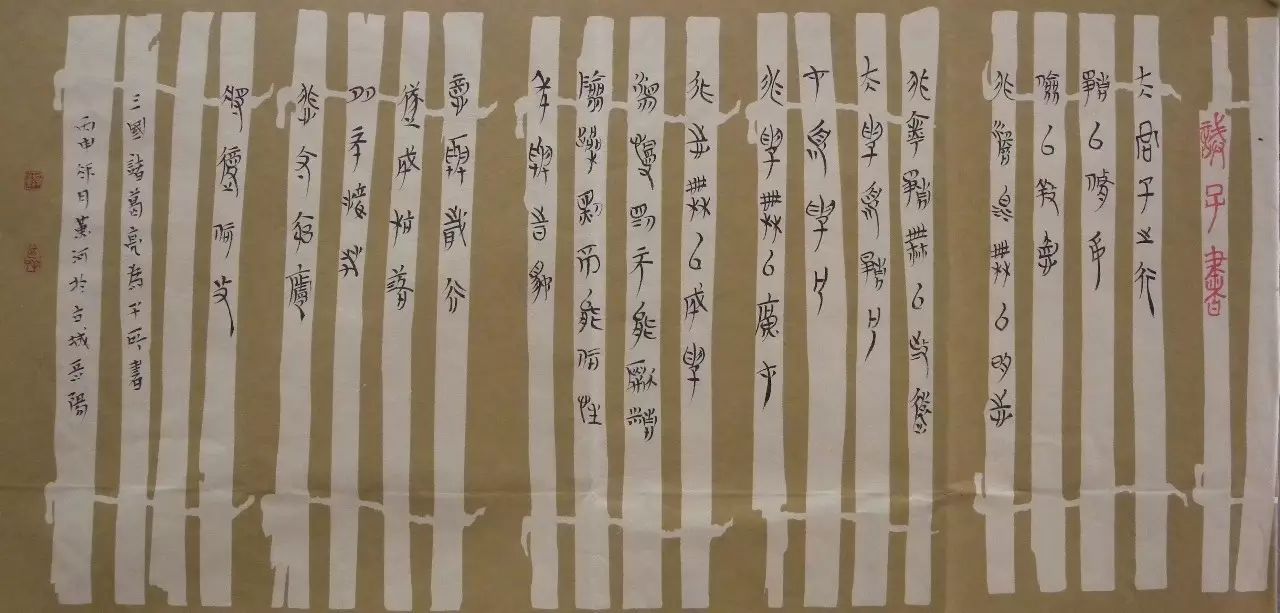 誡子書
夫君子之行
靜以修身
儉以養德
非澹泊無以明志
非寧靜無以致遠
夫學須靜也
才須學也
非學無以廣才
非志無以成學
慢則不能勵精
險躁則不能治性
年與時馳
意與歲去
遂成枯落
悲守窮廬
將復何及
三國諸葛亮爲子所書
丙申月河於古城岳陽